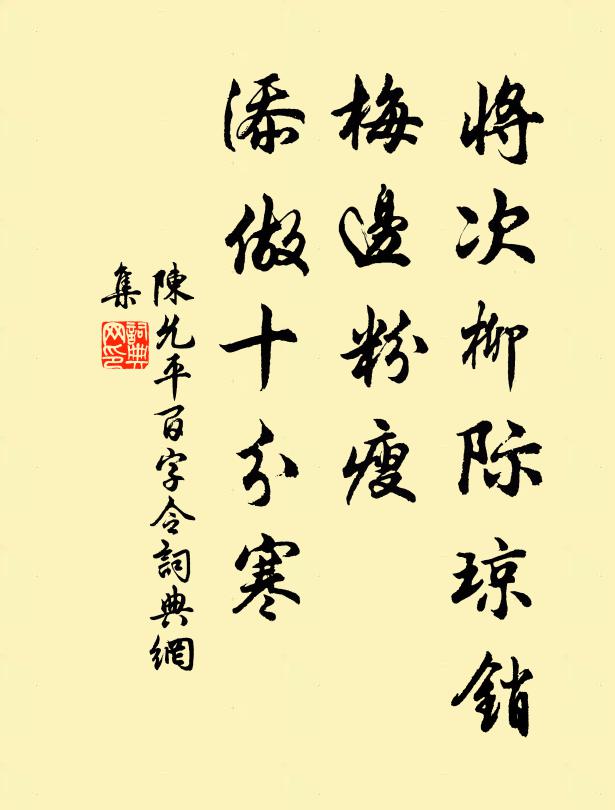 将次柳际琼销
梅邊粉瘦
添做十分寒
陳允平百字令詞典網
集
詞典
网印